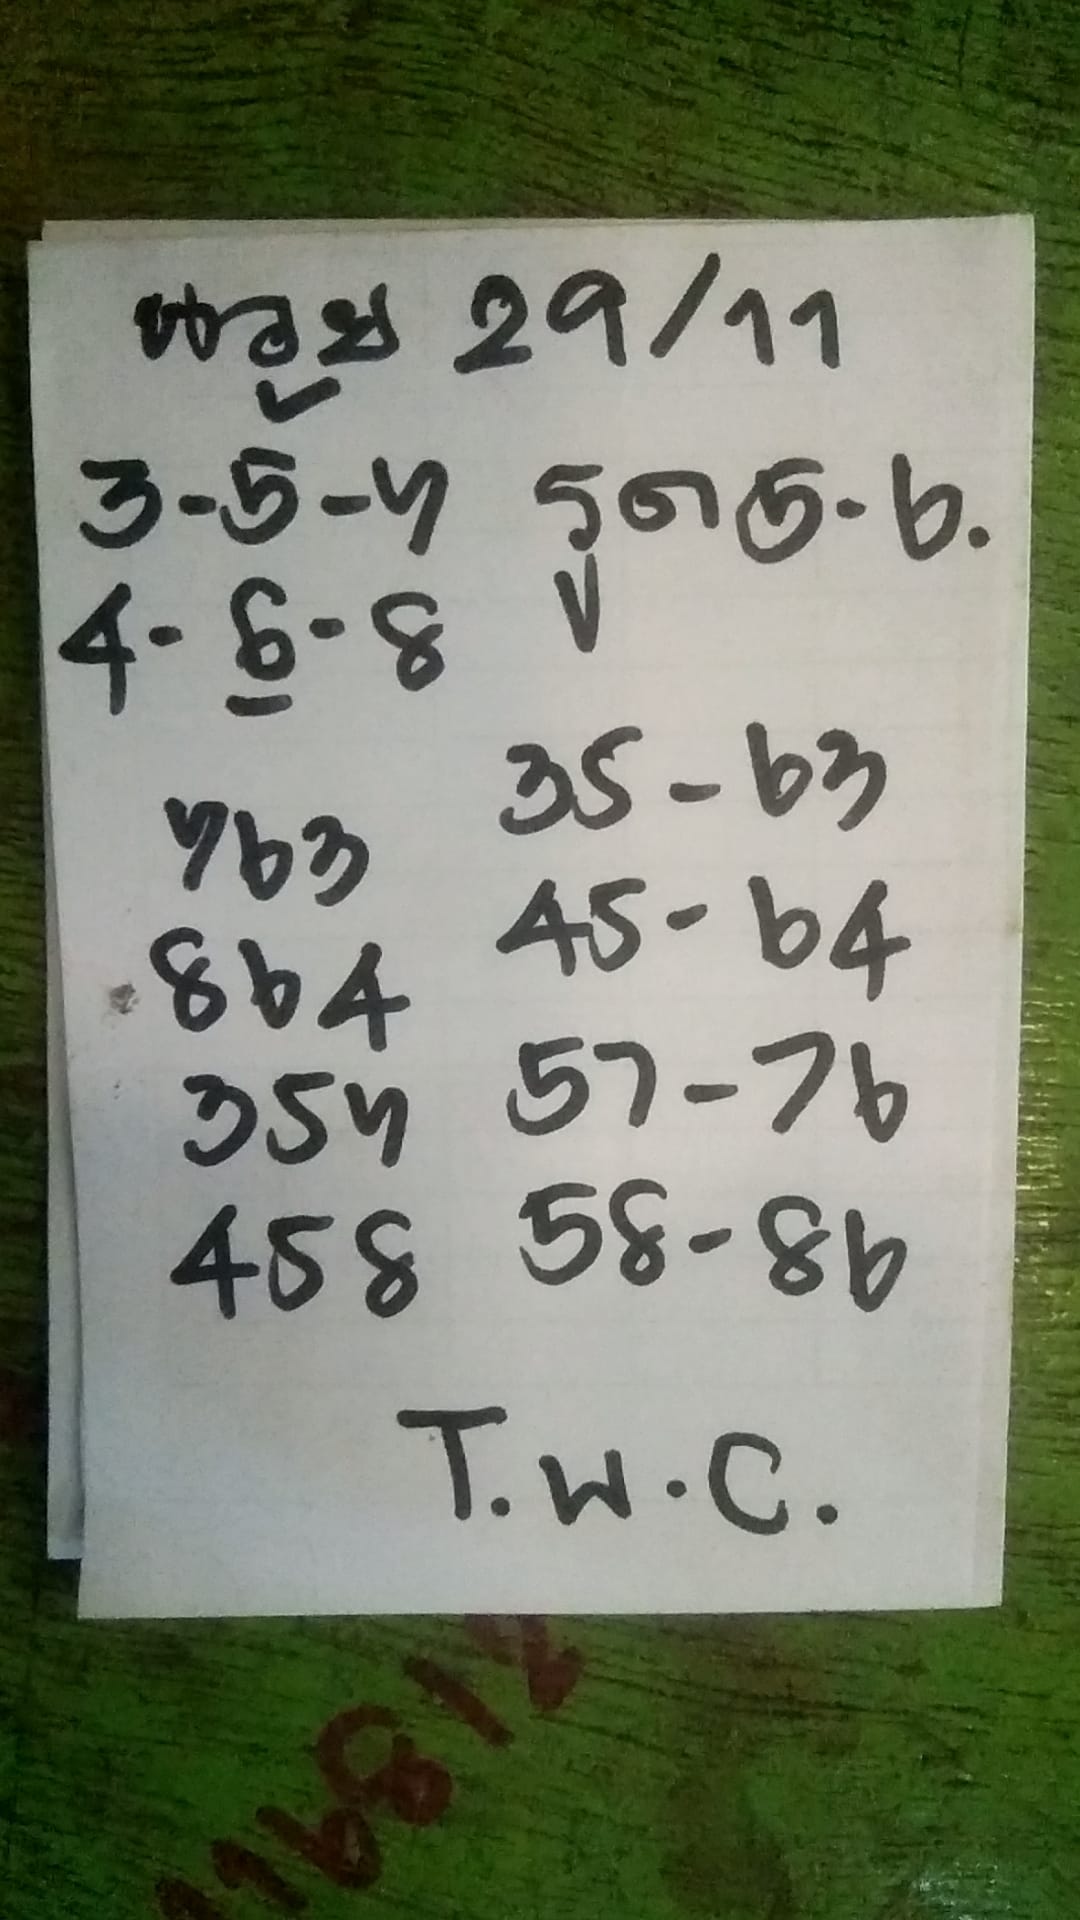 หวย 29/11
3-5-7 รูด 5-6.
4-6-8
763
864
357
458
35-63
45-64
57-76
58-86
T.W.C.